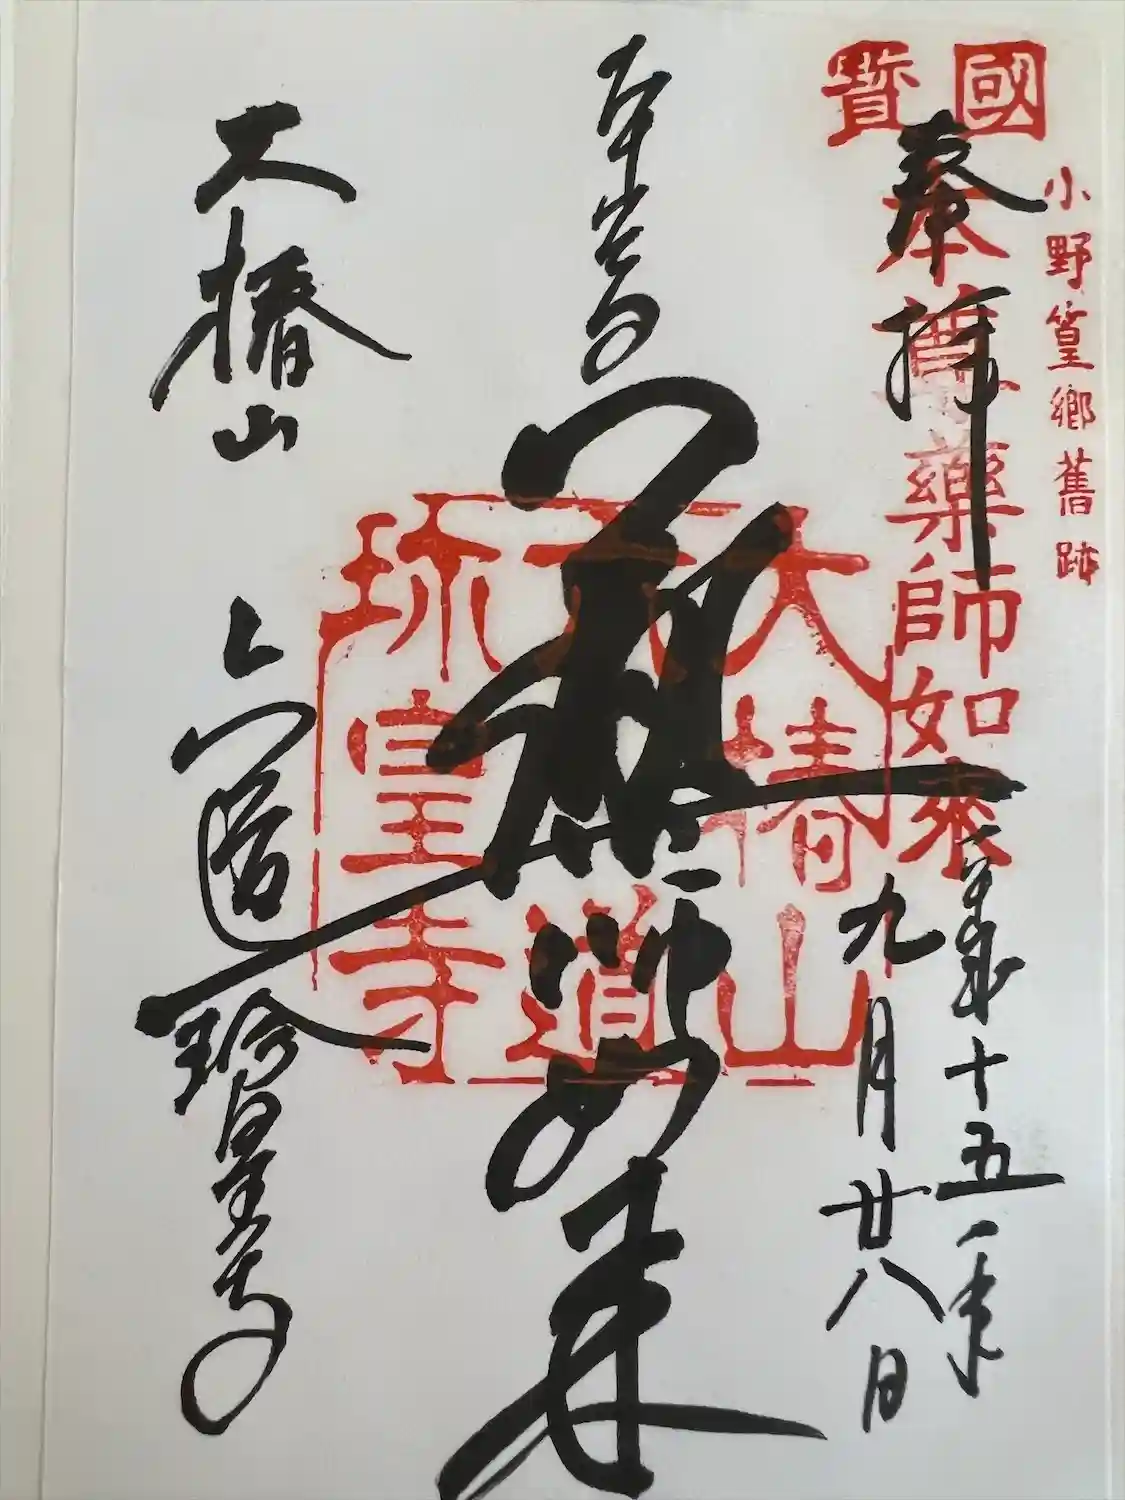 國寶
小野篁郷舊跡
本尊藥師如來
奉拝
平成十五年
九月廿八日
本尊
薬師如来
大椿山
六道
珎皇寺
大椿山
六道珍皇寺